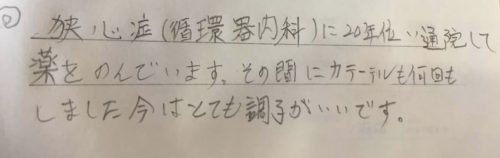 ② 狭心症(循環器内科)に20年位い通院して
薬をのんでいます。その間にカテーテルも何回も
しました今はとても調子がいいです。